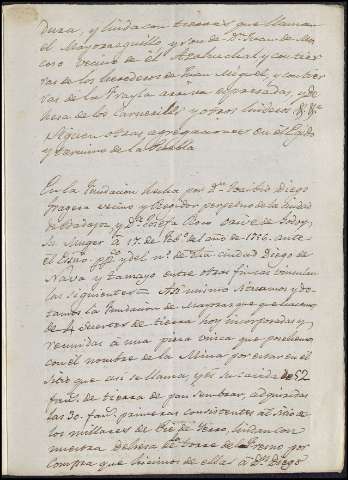 Dura, y linda con tierras que llaman
el Mayorazguillo, y son de Dn Juan de Mo
coso vecino de el Azahuchal y con tier
ras de los herederos de Juan Miguel, y con tier
ras de la Frayla arriva espresadas, y de
hesa de los Carneriles y otros linderos &&a
Siguen otras agregaciones en el Egido
y termino de la Puebla
En la fundacion hecha por Dn Toribio Diego
fragera vecino y Regidor perpetuo de la ciudad
de Badajoz y Da Josefa Roco de Godoy,
su Muger á 17. de Febo del año de 1736. ante
el Esno ppco y del no de Dha ciudad Diego de
Nava y Tamayo entre otras fincas vinculan
las siguientes = Asimismo situamos y do
tamos la fundacion de Mayorazgo que hacemos
de 4 suertes de tierra hoy incorporadas y
reunidas á una pieza unica que poseemos
con el nombre de la Mina por estar en el
sitio que asi se llama, y es su cavida de 52
fans de tierra de pan sembrar, adquiridas
las 30. fans primeras consistentes al sitio de
los millares de lindan con
nuestra dehesa de la torre de por
compra que hicimos de ellas á Dn Diego